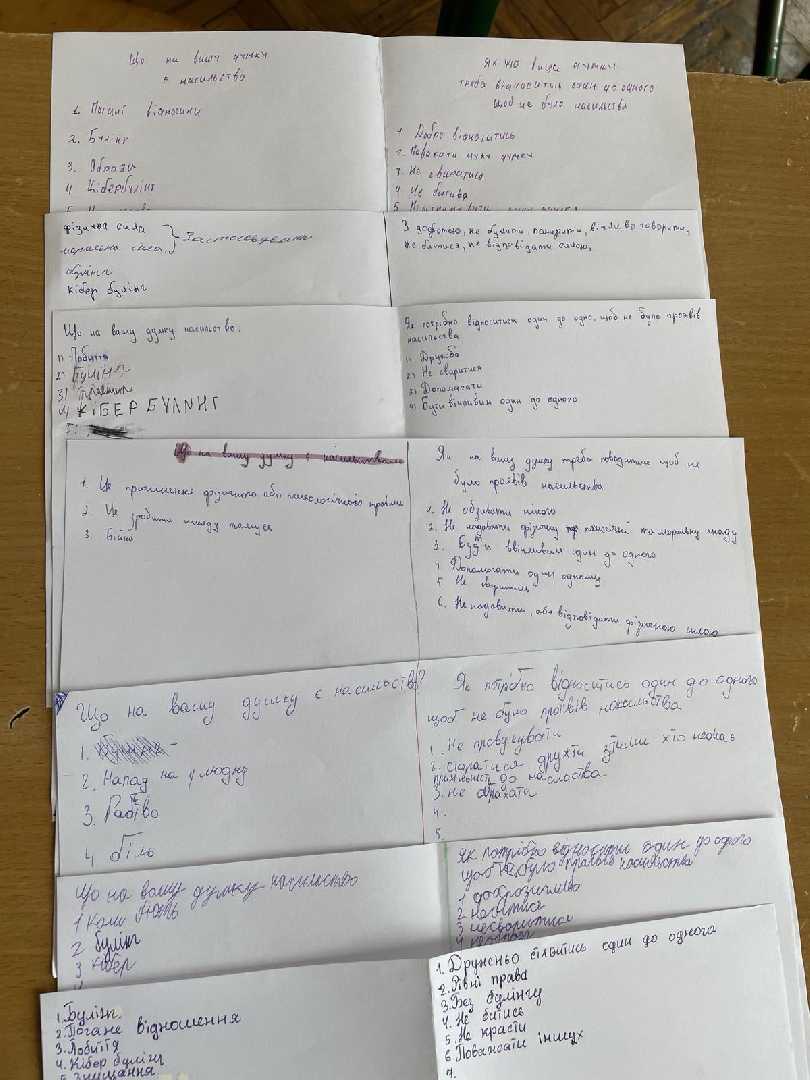 Що на вашу думку
є насильство
1. Погані відносини
2. Булінг
3. Образи
4. Кібербулінг
5.
Як на вашу думку
треба відноситись один до одного
щоб не було насильства
1. Добре відноситись
2. Поважати чужу думку
3. Не сваритися
4. Не битися
5.
фізична сила
моральна сила } Застосовування
булінг
кібер булінг
З добротою, не булити, ввічливо говорити,
не битися, не відповідати силою,
Що на вашу думку насильство:
1) Побиття
2) Булінг
3)
4) КІБЕР БУЛИНГ
Як потрібно відноситися один до одно, щоб не було проявів
насильства
1) Дружба
2) Не сваритися
3) Допомагати
4) Бути ввічливим один до одного
Що на вашу думку є насильство
1. Це фізичного або психологічного
2. Це зробити шкоду комусь
3. Бійка
Як на вашу думку треба поводитися щоб не
було проявів насильства
1. Не ображати нікого
2. Не фізичну та моральну шкоду
3. Бути ввічливим один до одного
4. Допомогать один одному
5. Не сваритись
6. або відповідати фізичною силою
Що на вашу думку є насильство?
1.
2. Напад на людну
3.
4. біль
Як потрібно відноситись один до одного
щоб не було проявів насильства
1. Не провукувати
2. старатися дружти з тими хто
до насластва.
3. не ображата
4.
5.
Що на вашу думку насильство
1 Коли бють
2 булінг
3 кібер
Як потрібно відноситись один до одного
щоб не було проявів насильства
1 доброзичливо
2 небитися
3 несваритися
4
1. Булінг
2. Погане відношення
3. Побиття
4. Кібер булінг
5. Знущання
1. Дружньо відноситись один до одного
2. Рівні права
3. Без булінгу
4. Не битись
5. Не красти
6. Поважати інших
7.